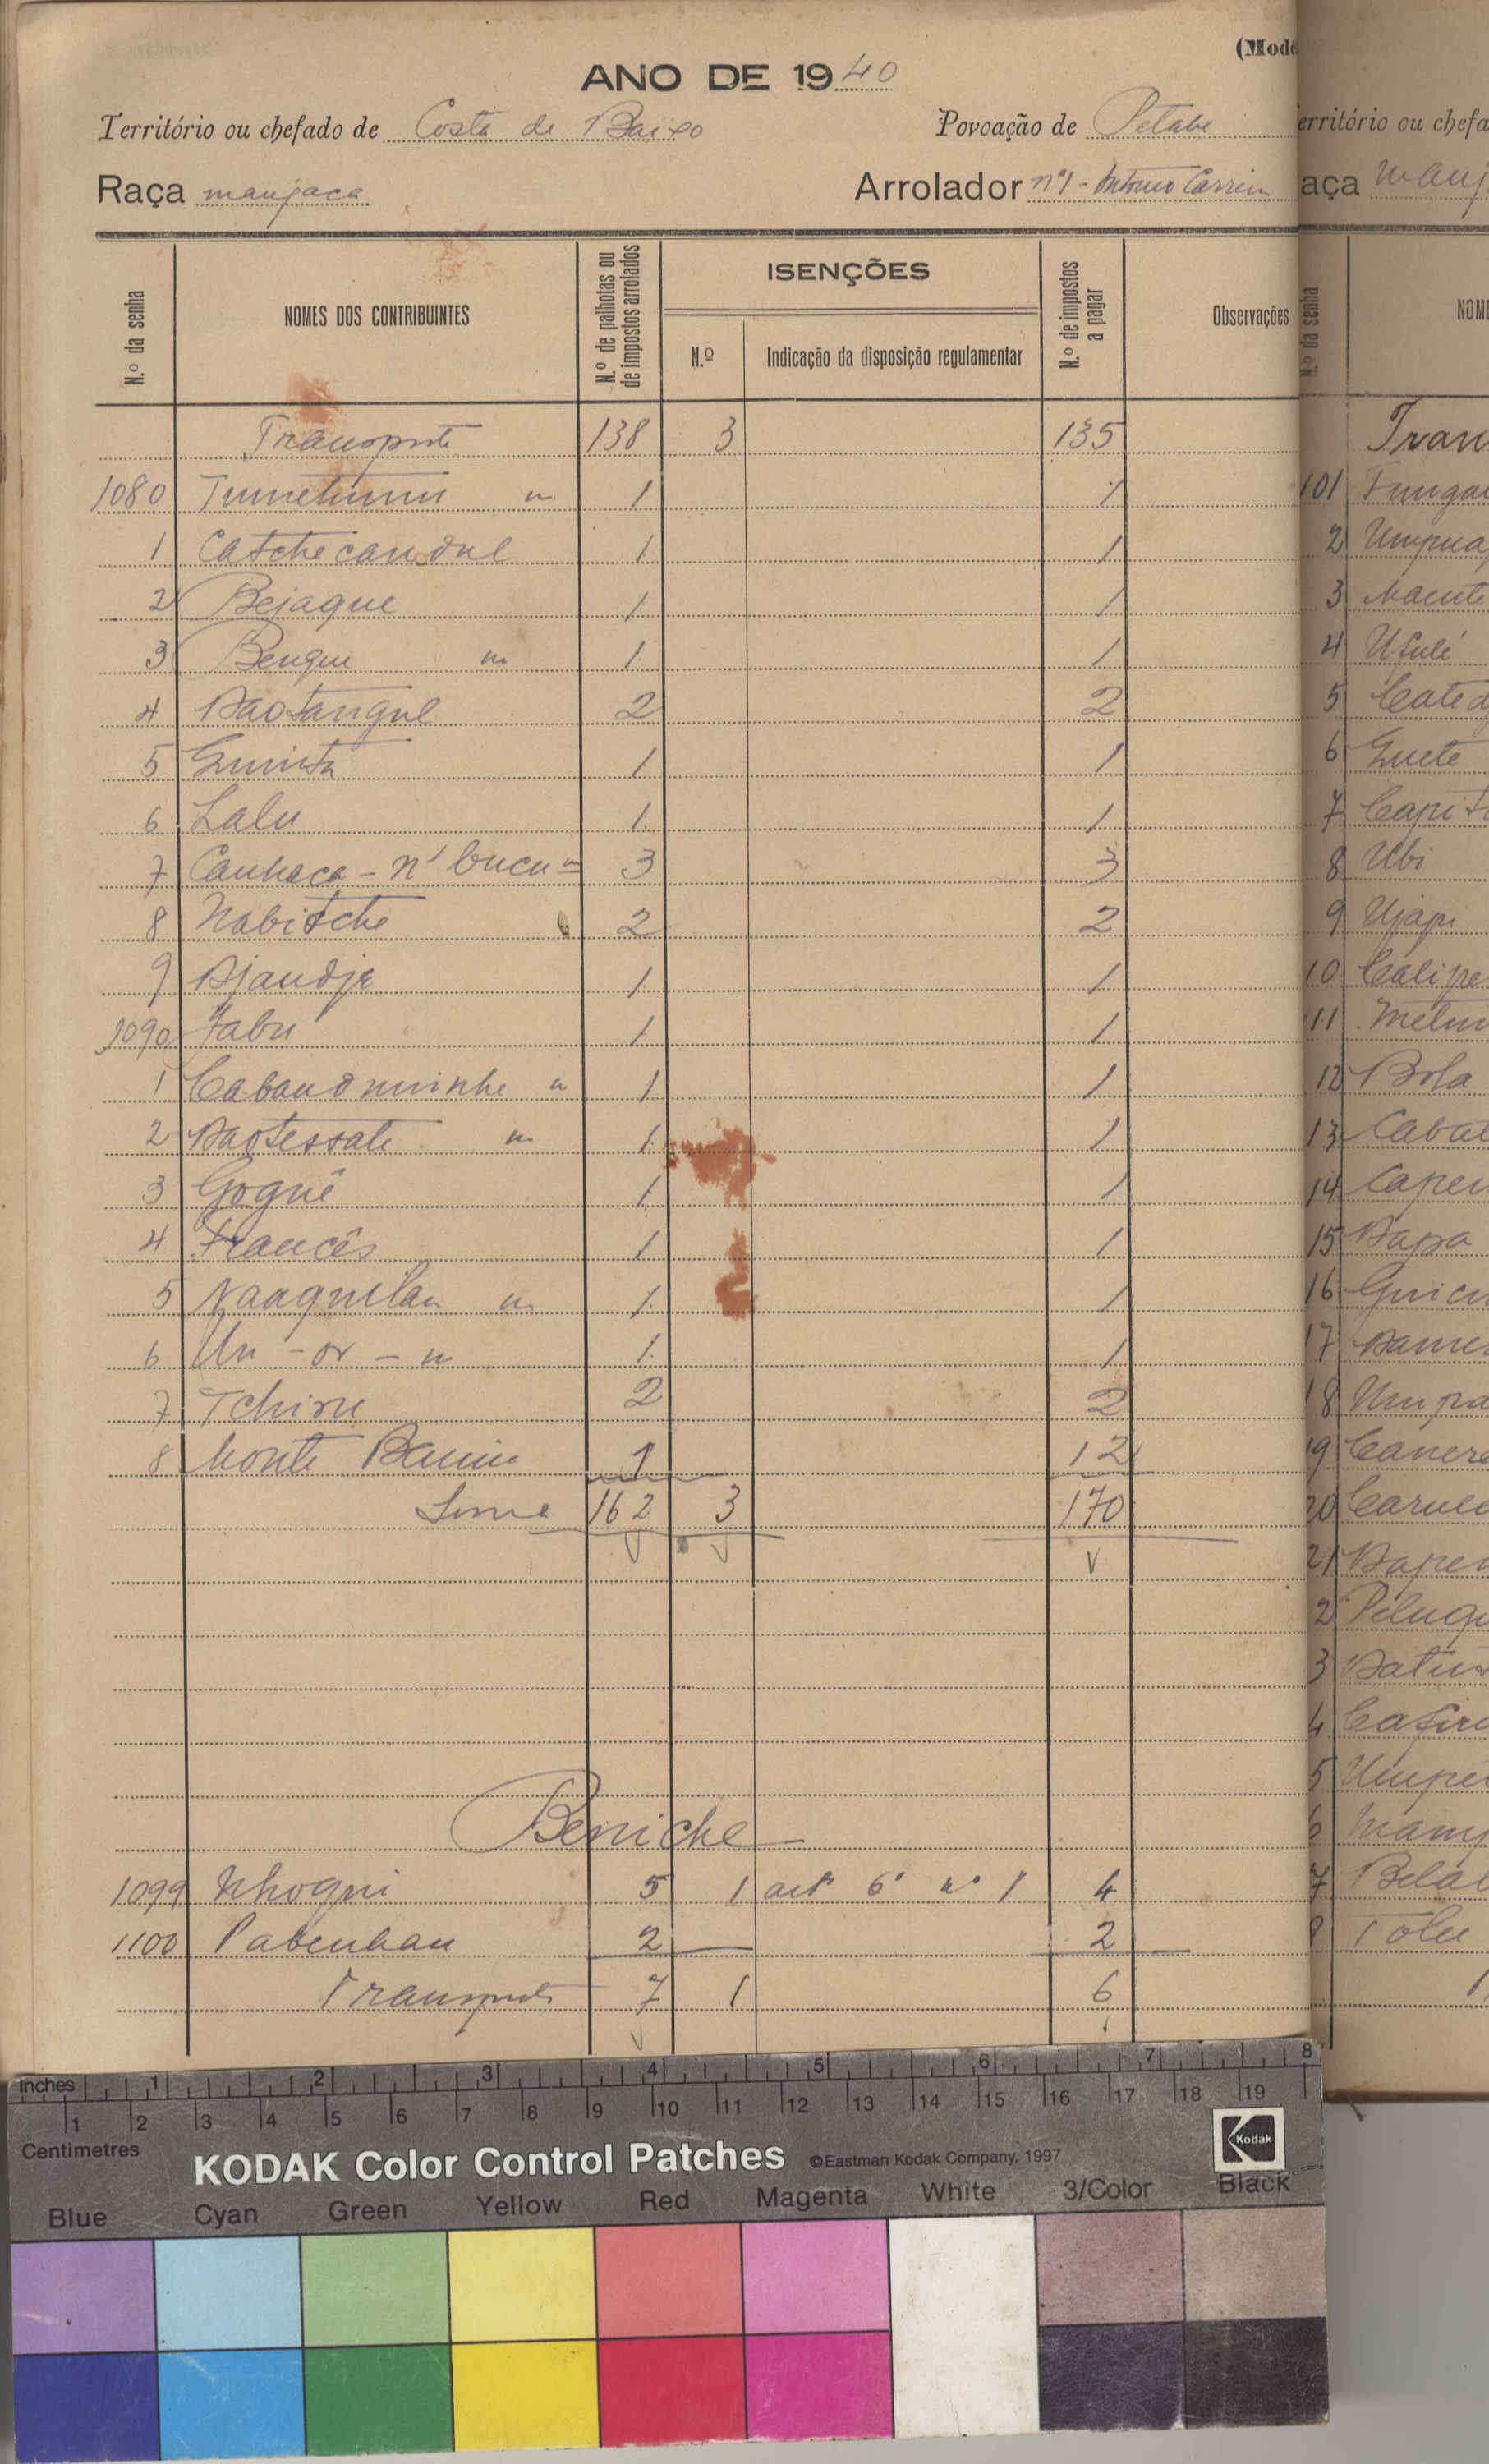 (Modê
ANO DE 1940
Território ou chefado de Costa de Baixo Povoação de Petabe
Raça manjaca Arrolador nº1 - António Carrein
N.º da senha NOMES DOS CONTRIBUINTES N.º de palhotas ou de impostos arrolados ISENÇÕES N.º Indicação da disposição regulamentar N.º de impostos a pagar Observações
Transporte 138 3 135
1080 1 1
1 Catchecandul 1 1
2 Bejaque 1 1
3 Bengue m 1 1
4 Dactangul 2 2
5 Quinta 1 1
6 Lalu 1 1
7 Canhaca - n'bucu m 3 3
8 Nabitche 2 2
9 Djandje 1 1
1090 Jabu 1 1
1 m 1 1
2 Dactessate m 1 1
3 Gogné 1 1
4 Francês 1 1
5 Naaquilan m 1 1
6 Un - or - m 1 1
7 2 2
8 1 12
Soma 162 3 170
Beniche
1099 Nhogni 5 1 artº 6º nº 1 4
1100 Pabenhau 2 2
Transporte 7 1 6
erritório ou chefa
aça manj
N.º da senha NOM
Tran
101 Funga
2 Umpua
3
4 Ufulé
5 Cated
6 Quete
7 Capit
8 Ubi
9 Ujapi
10 Calipe
11 Metu
12 Bola
13 Cabal
14 Capeu
15 Dapa
16 Guicu
17 Dame
18 Umpa
19 Canere
20 Carue
21 Dapen
2 Pelugu
3 Datu
4 Cafire
5 Umpe
6 Many
7 Belal
8 Tolu
inches 1 2 3 4 5 6 7 8
1 2 3 4 5 6 7 8 9 10 11 12 13 14 15 16 17 18 19
Centimetres
KODAK Color Control Patches ©Eastman Kodak Company, 1997 Kodak
Blue Cyan Green Yellow Red Magenta White 3/Color Black